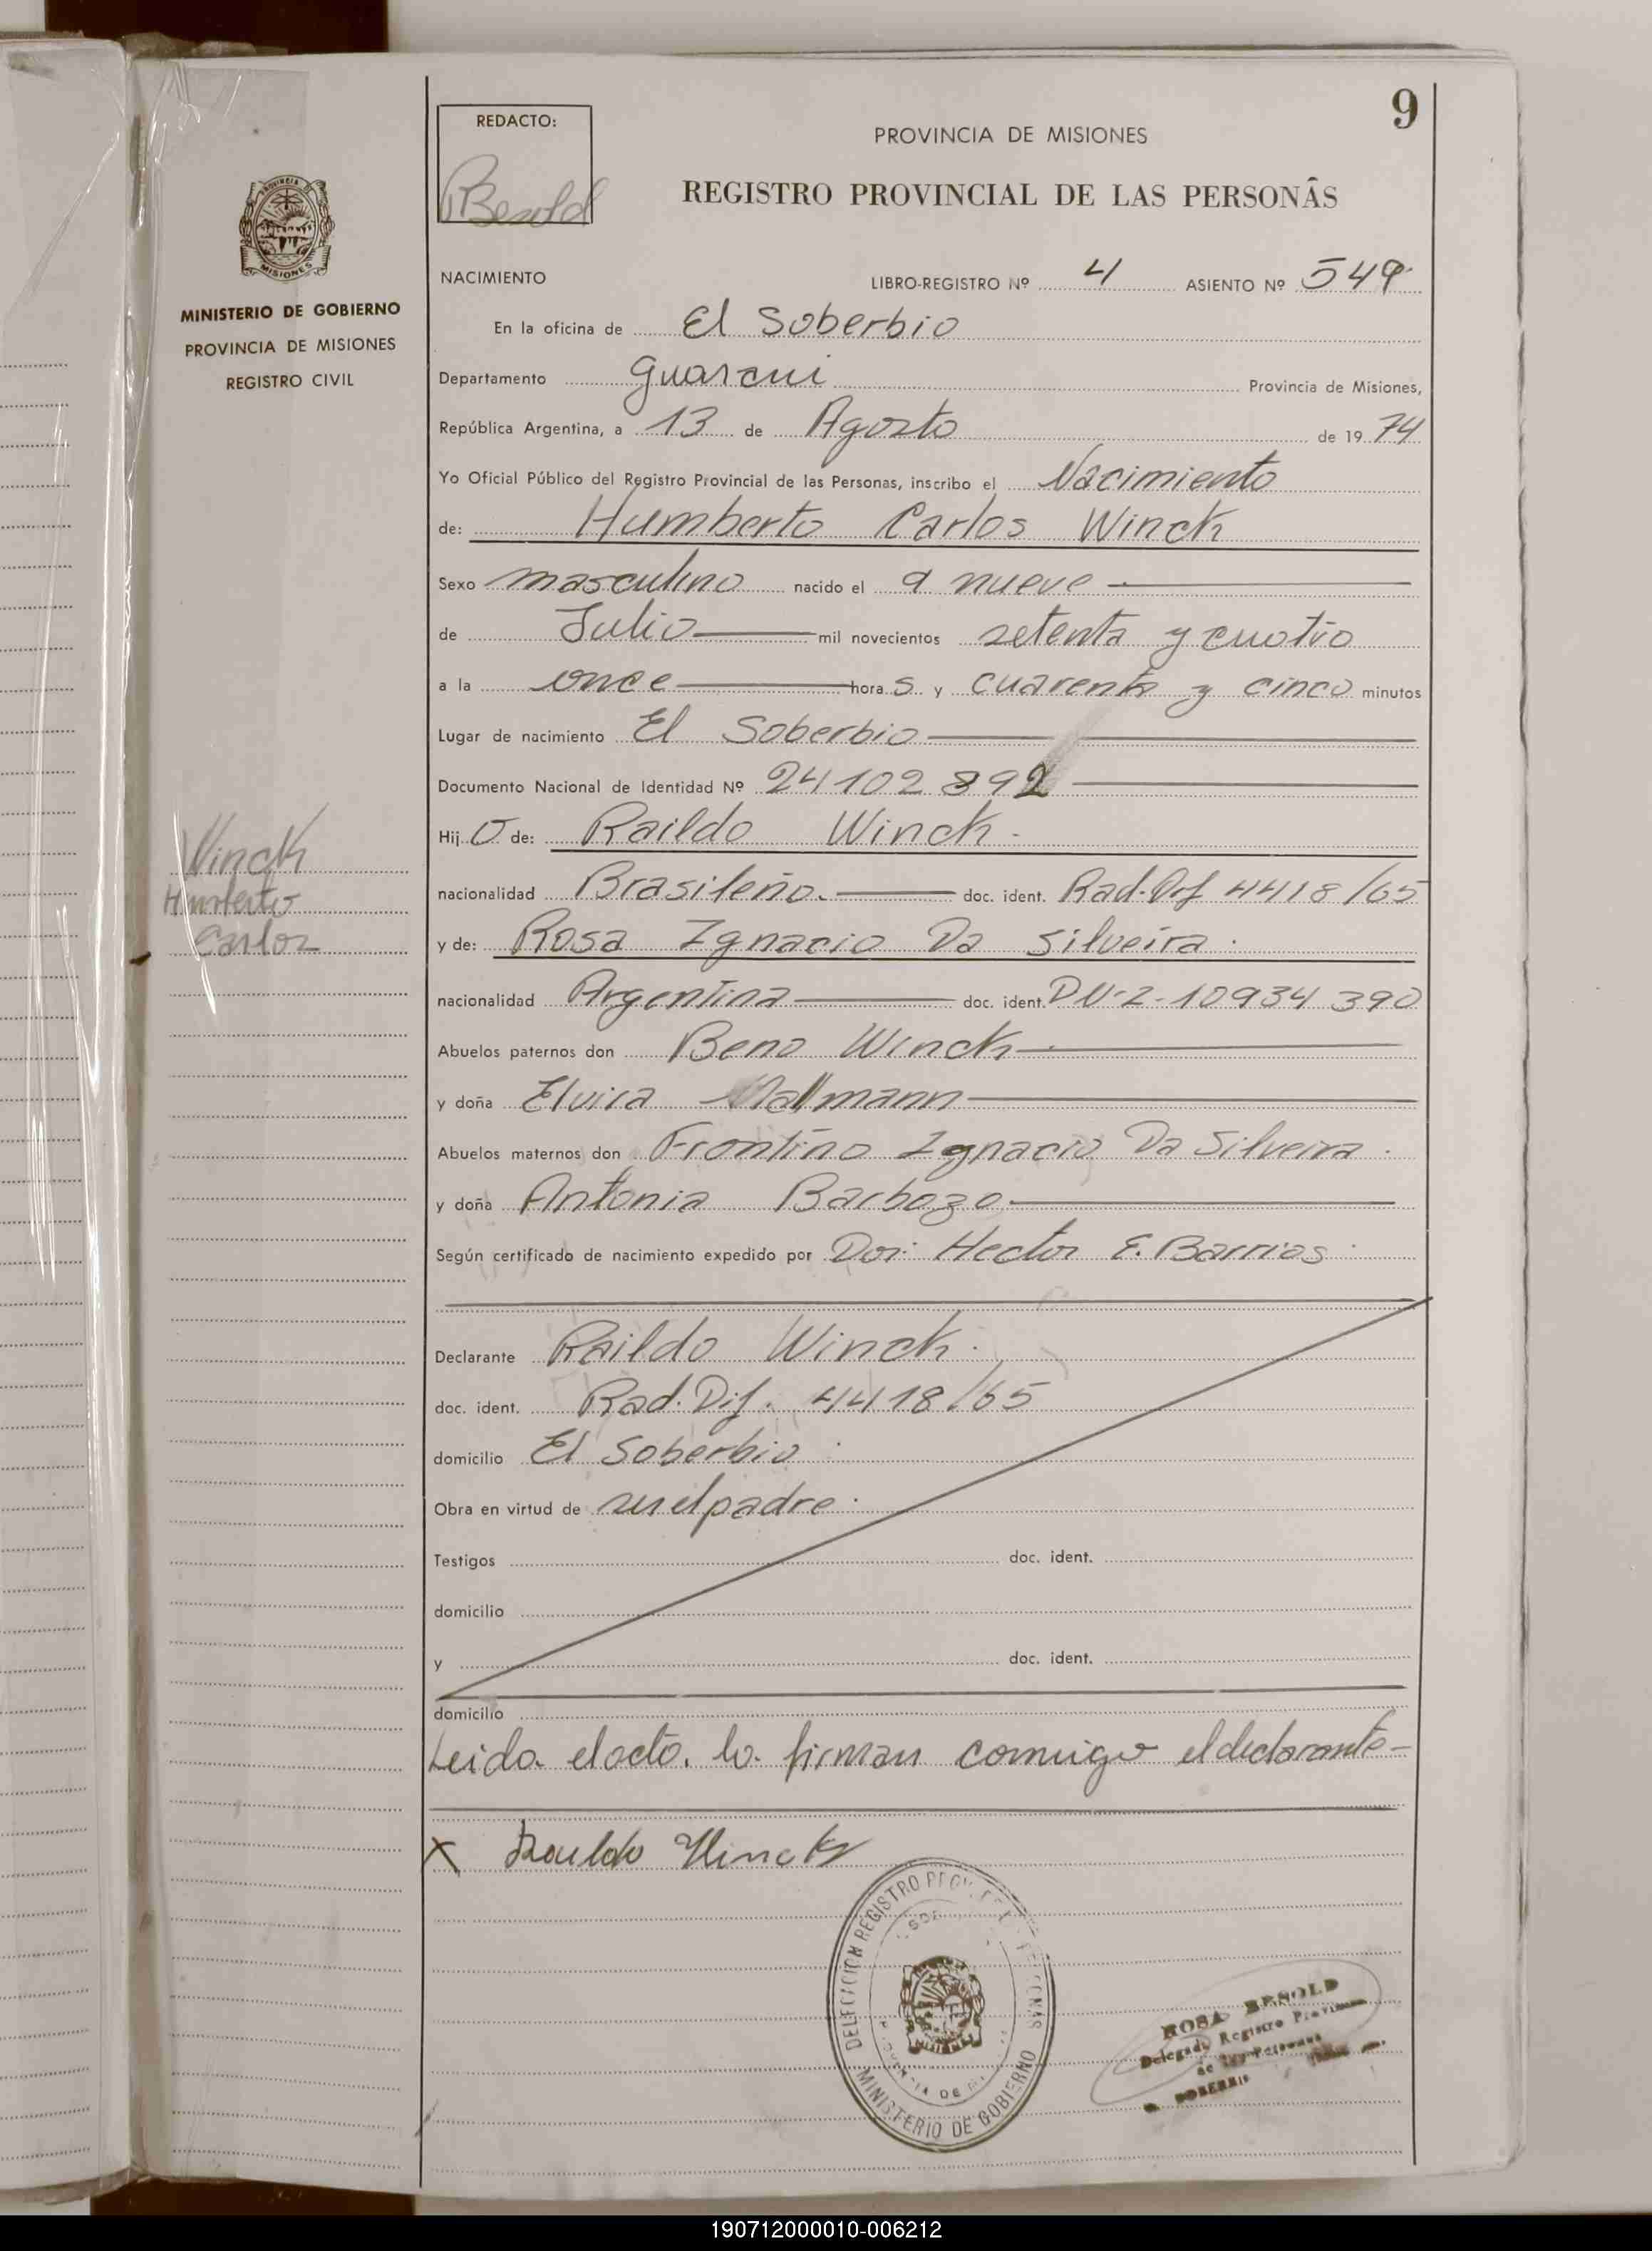 9
REDACTO:
Besold
PROVINCIA DE MISIONES
REGISTRO PROVINCIAL DE LAS PERSONAS
PROVINCIA DE
MISIONES
MINISTERIO DE GOBIERNO
PROVINCIA DE MISIONES
REGISTRO CIVIL
NACIMIENTO LIBRO-REGISTRO Nº 4 ASIENTO Nº 549
En la oficina de El Soberbio
Departamento Guarani Provincia de Misiones,
República Argentina, a 13 de Agosto de 19 74
Yo Oficial Público del Registro Provincial de las Personas, inscribo el Nacimiento
de: Humberto Carlos Winck
Sexo masculino nacido el 9 nueve
de Julio mil novecientos setenta y cuatro
a la once hora s y cuarenta y cinco minutos
Lugar de nacimiento El Soberbio
Documento Nacional de Identidad Nº 24102892
Hij o de: Raildo Winck.
Winck
Humberto
Carlos
nacionalidad Brasileño. doc. ident. Rad. Dif 4418/65
y de: Rosa Ignacio Da Silveira.
nacionalidad Argentina doc. ident. DU-2-10934390
Abuelos paternos don Beno Winck
y doña Elvira Mallmann
Abuelos maternos don Frontino Ignacio Da Silveira.
y doña Antonia Barbozo
Según certificado de nacimiento expedido por Dor: Hector E. Barrios
Declarante Raildo Winck.
doc. ident. Rad. Dif. 4418/65
domicilio El Soberbio
Obra en virtud de ser el padre.
Testigos doc. ident.
domicilio
y doc. ident.
domicilio
Leida el acto. lo firman comigo el declarante
X Raildo Winck
DELEGACION REGISTRO PERSONAS
PROVINCIA DE
MINISTERIO DE GOBIERNO
ROSA BESOLD
Delegada Registro Provincial
de las Personas
SOBERBIO
190712000010-006212